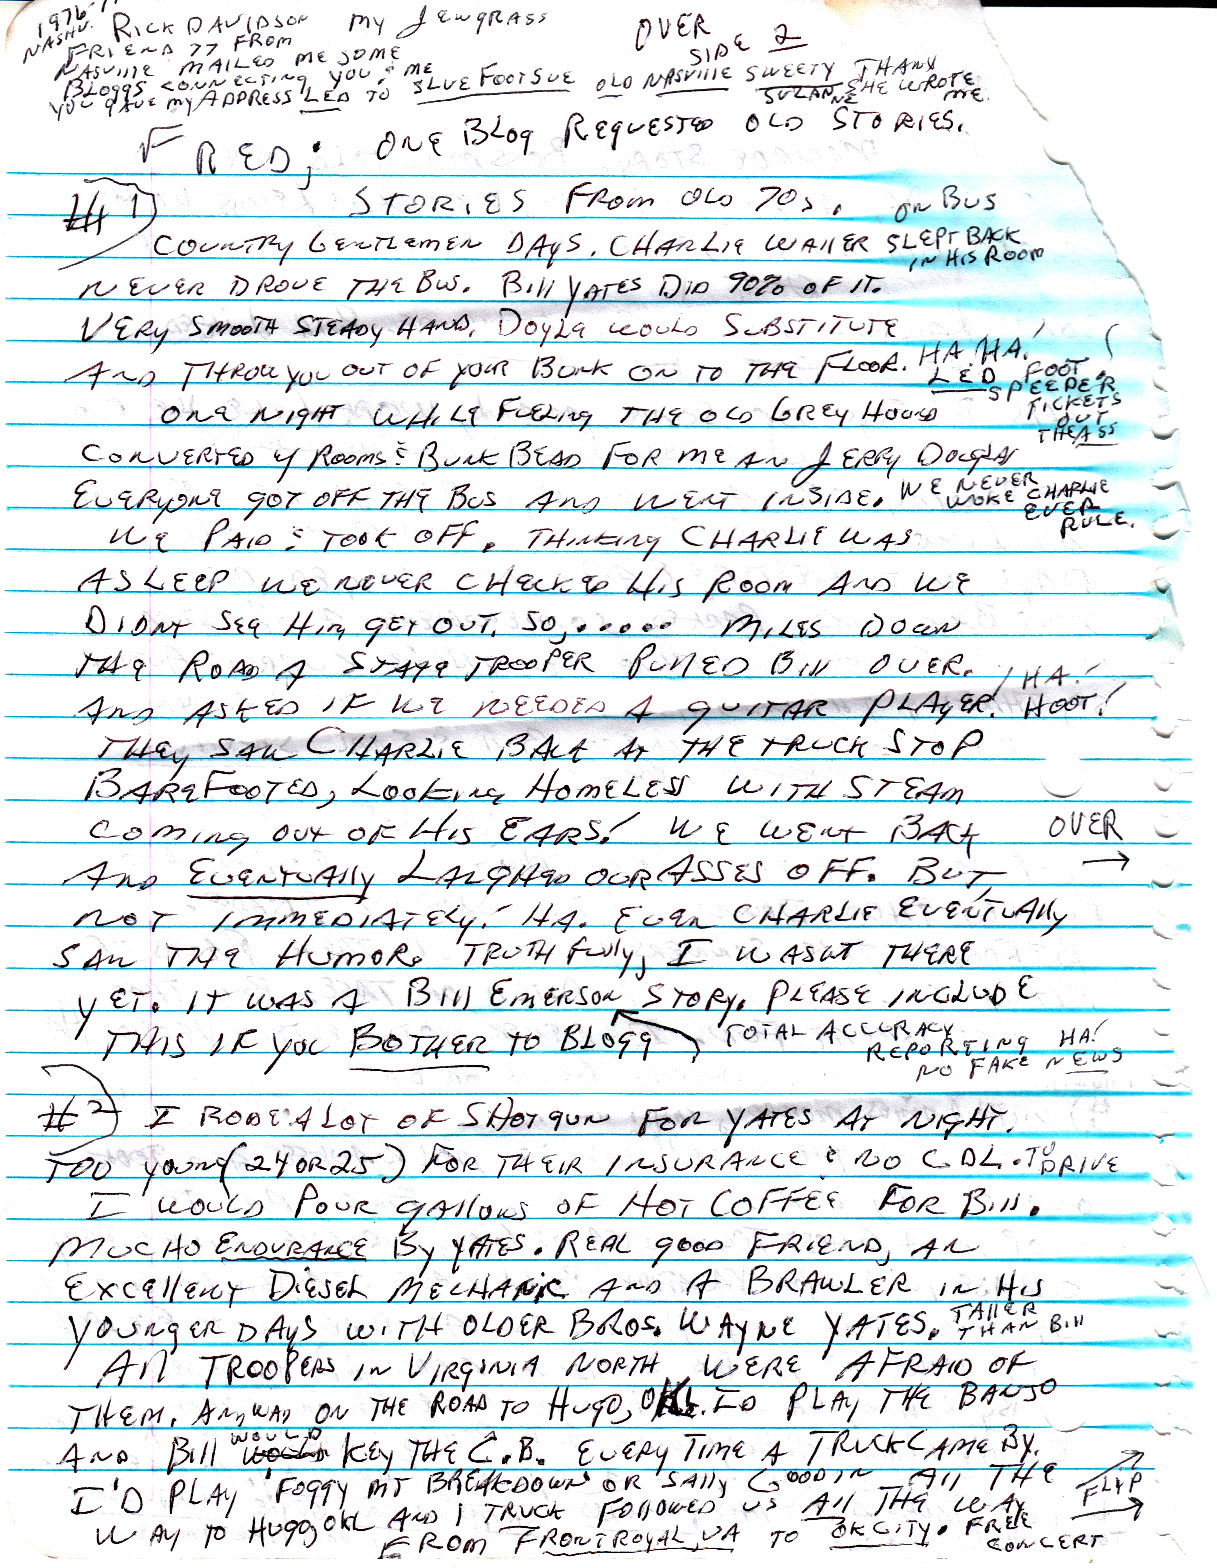 1976-
NASHV. RICK DAVIDSON MY JEWGRASS
FRIEND 77 FROM
NASVILLE MAILED ME SOME
BLOGGS CONNECTING YOU & ME
YOU GAVE MY ADDRESS LED TO SLUE FOOT SUE OLD NASVILLE SWEETY THANX
SUZANNE SHE WROTE ME.
OVER
SIDE 2
FRED; ONE BLOG REQUESTED OLD STORIES.
#1) STORIES FROM OLD 70s.
COUNTRY GENTLEMEN DAYS. CHARLIE WALLER SLEPT BACK
ON BUS
IN HIS ROOM
NEVER DROVE THE BUS. Bill YATES DID 90% OF IT.
VERY SMOOTH STEADY HAND. DOYLE WOULD SUBSTITUTE
AND THROW YOU OUT OF YOUR BUNK ON TO THE FLOOR. HA HA!
LED FOOT
SPEEDER
TICKETS
OUT
THE ASS
ONE NIGHT WHILE FUELING THE OLD GREY HOUND
CONVERTED W/ ROOMS & BUNK BEAD FOR ME AN JERRY DOUGLAS
EVERYONE GOT OFF THE BUS AND WENT INSIDE. WE NEVER
WOKE CHARLIE
EVER
RULE.
WE PAID & TOOK OFF. THINKING CHARLIE WAS
ASLEEP WE NEVER CHECKED HIS ROOM AND WE
DIDNT SEE HIM GET OUT. SO, ..... MILES DOWN
THE ROAD A STATE TROOPER PULLED Bill OVER.
AND ASKED IF WE NEEDED A GUITAR PLAYER! HA! HOOT!
THEY SAW CHARLIE BACK AT THE TRUCK STOP
BAREFOOTED, LOOKING HOMELESS WITH STEAM
COMING OUT OF HIS EARS! WE WENT BACK
OVER →
AND EVENTUALLY LAUGHED OUR ASSES OFF. BUT,
NOT IMMEDIATELY! HA. EVEN CHARLIE EVENTUALLY
SAW THE HUMOR. TRUTHFULLY, I WASNT THERE
YET. IT WAS A Bill EMERSON STORY. PLEASE INCLUDE
THIS IF YOU BOTHER TO BLOGG
TOTAL ACCURACY
REPORTING HA!
NO FAKE NEWS
#2) I RODE A LOT OF SHOTGUN FOR YATES AT NIGHT.
TOO YOUNG (24 OR 25) FOR THEIR INSURANCE & NO CDL. TO DRIVE
I WOULD POUR GALLONS OF HOT COFFEE FOR Bill.
MUCHO ENDURANCE BY YATES. REAL GOOD FRIEND, AN
EXCELLENT DIESEL MECHANIC AND A BRAWLER IN HIS
YOUNGER DAYS WITH OLDER BROS. WAYNE YATES. TALLER
THAN Bill
All TROOPERS IN VIRGINIA NORTH WERE AFRAID OF
THEM. ANYWAY ON THE ROAD TO HUGO, OKL. I'D PLAY THE BANJO
AND Bill WOULD KEY THE C.B. EVERY TIME A TRUCK CAME BY.
I'D PLAY FOGGY MT BREAKDOWN OR SALLY GOODIN All THE
WAY TO HUGO, OKL AND 1 TRUCK FOLLOWED US All THE WAY
FROM FRONT ROYAL, VA TO OK CITY. FREE
CONCERT
FLIP →